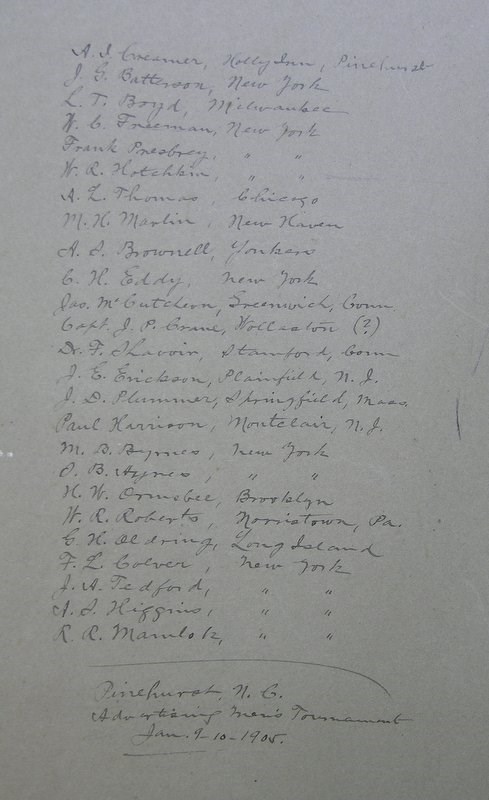 A. I. Creamer, Holly Inn, Pinehurst
J. G. Batterson, New York
L. T. Boyd, Milwaukee
W. C. Freeman, New York
Frank Presbrey, " "
W. R. Hotchkin, " "
A. L. Thomas, Chicago
M. H. Marlin, New Haven
A. S. Brownell, Yonkers
C. H. Eddy, New York
Jas. McCutcheon, Greenwich, Conn
Capt. J. P. Crane, Wollaston (?)
F. Stamford, Conn
J. E. Erickson, Plainfield, N. J.
J. D. Plummer, Springfield, Mass.
Paul Harrison, Montclair, N. J.
M. B. Byrnes, New York
O. B. Aynes, " "
H. W. Ormsbee, Brooklyn
W. R. Roberts, Norristown, Pa.
C. H. Long Island
F. L. Colver, New York
J. A. Tedford, " "
A. S. Higgins, " "
R. R. Mamlok, " "
Pinehurst, N. C.
Advertising Men's Tournament
Jan. 9-10-1905.